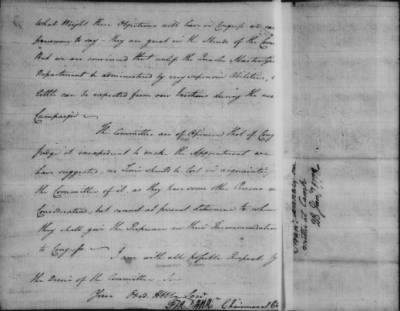 What Weight these Objections will have in Congress we can
to say - they are great in the Minds of the Com
But we are convinced that unless the Quarter Master
Department be administered by very extensive Abilities,
little can be expected from our Exertions during the next
Campaign
The Committee are of Opinion that if Cong
Judge it inexpedient to make the Appointment we
have suggested, no Time should be lost in acquainting
the Committee of it, as they have some other Persons in
Consideration, but cannot at present determine to whom
they shall give the Preference in their Recommendation
to Congress
I am with all possible Respect by
the Desire of the Committee Sir
Your Obed. Hble Servt
FRA DANA Chairman
28 Jany 1778